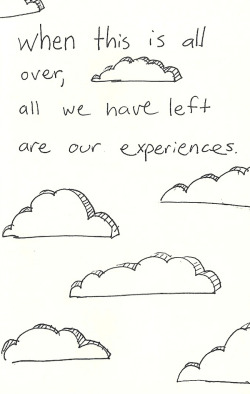 when this is all
over,
all we have left
are our experiences.